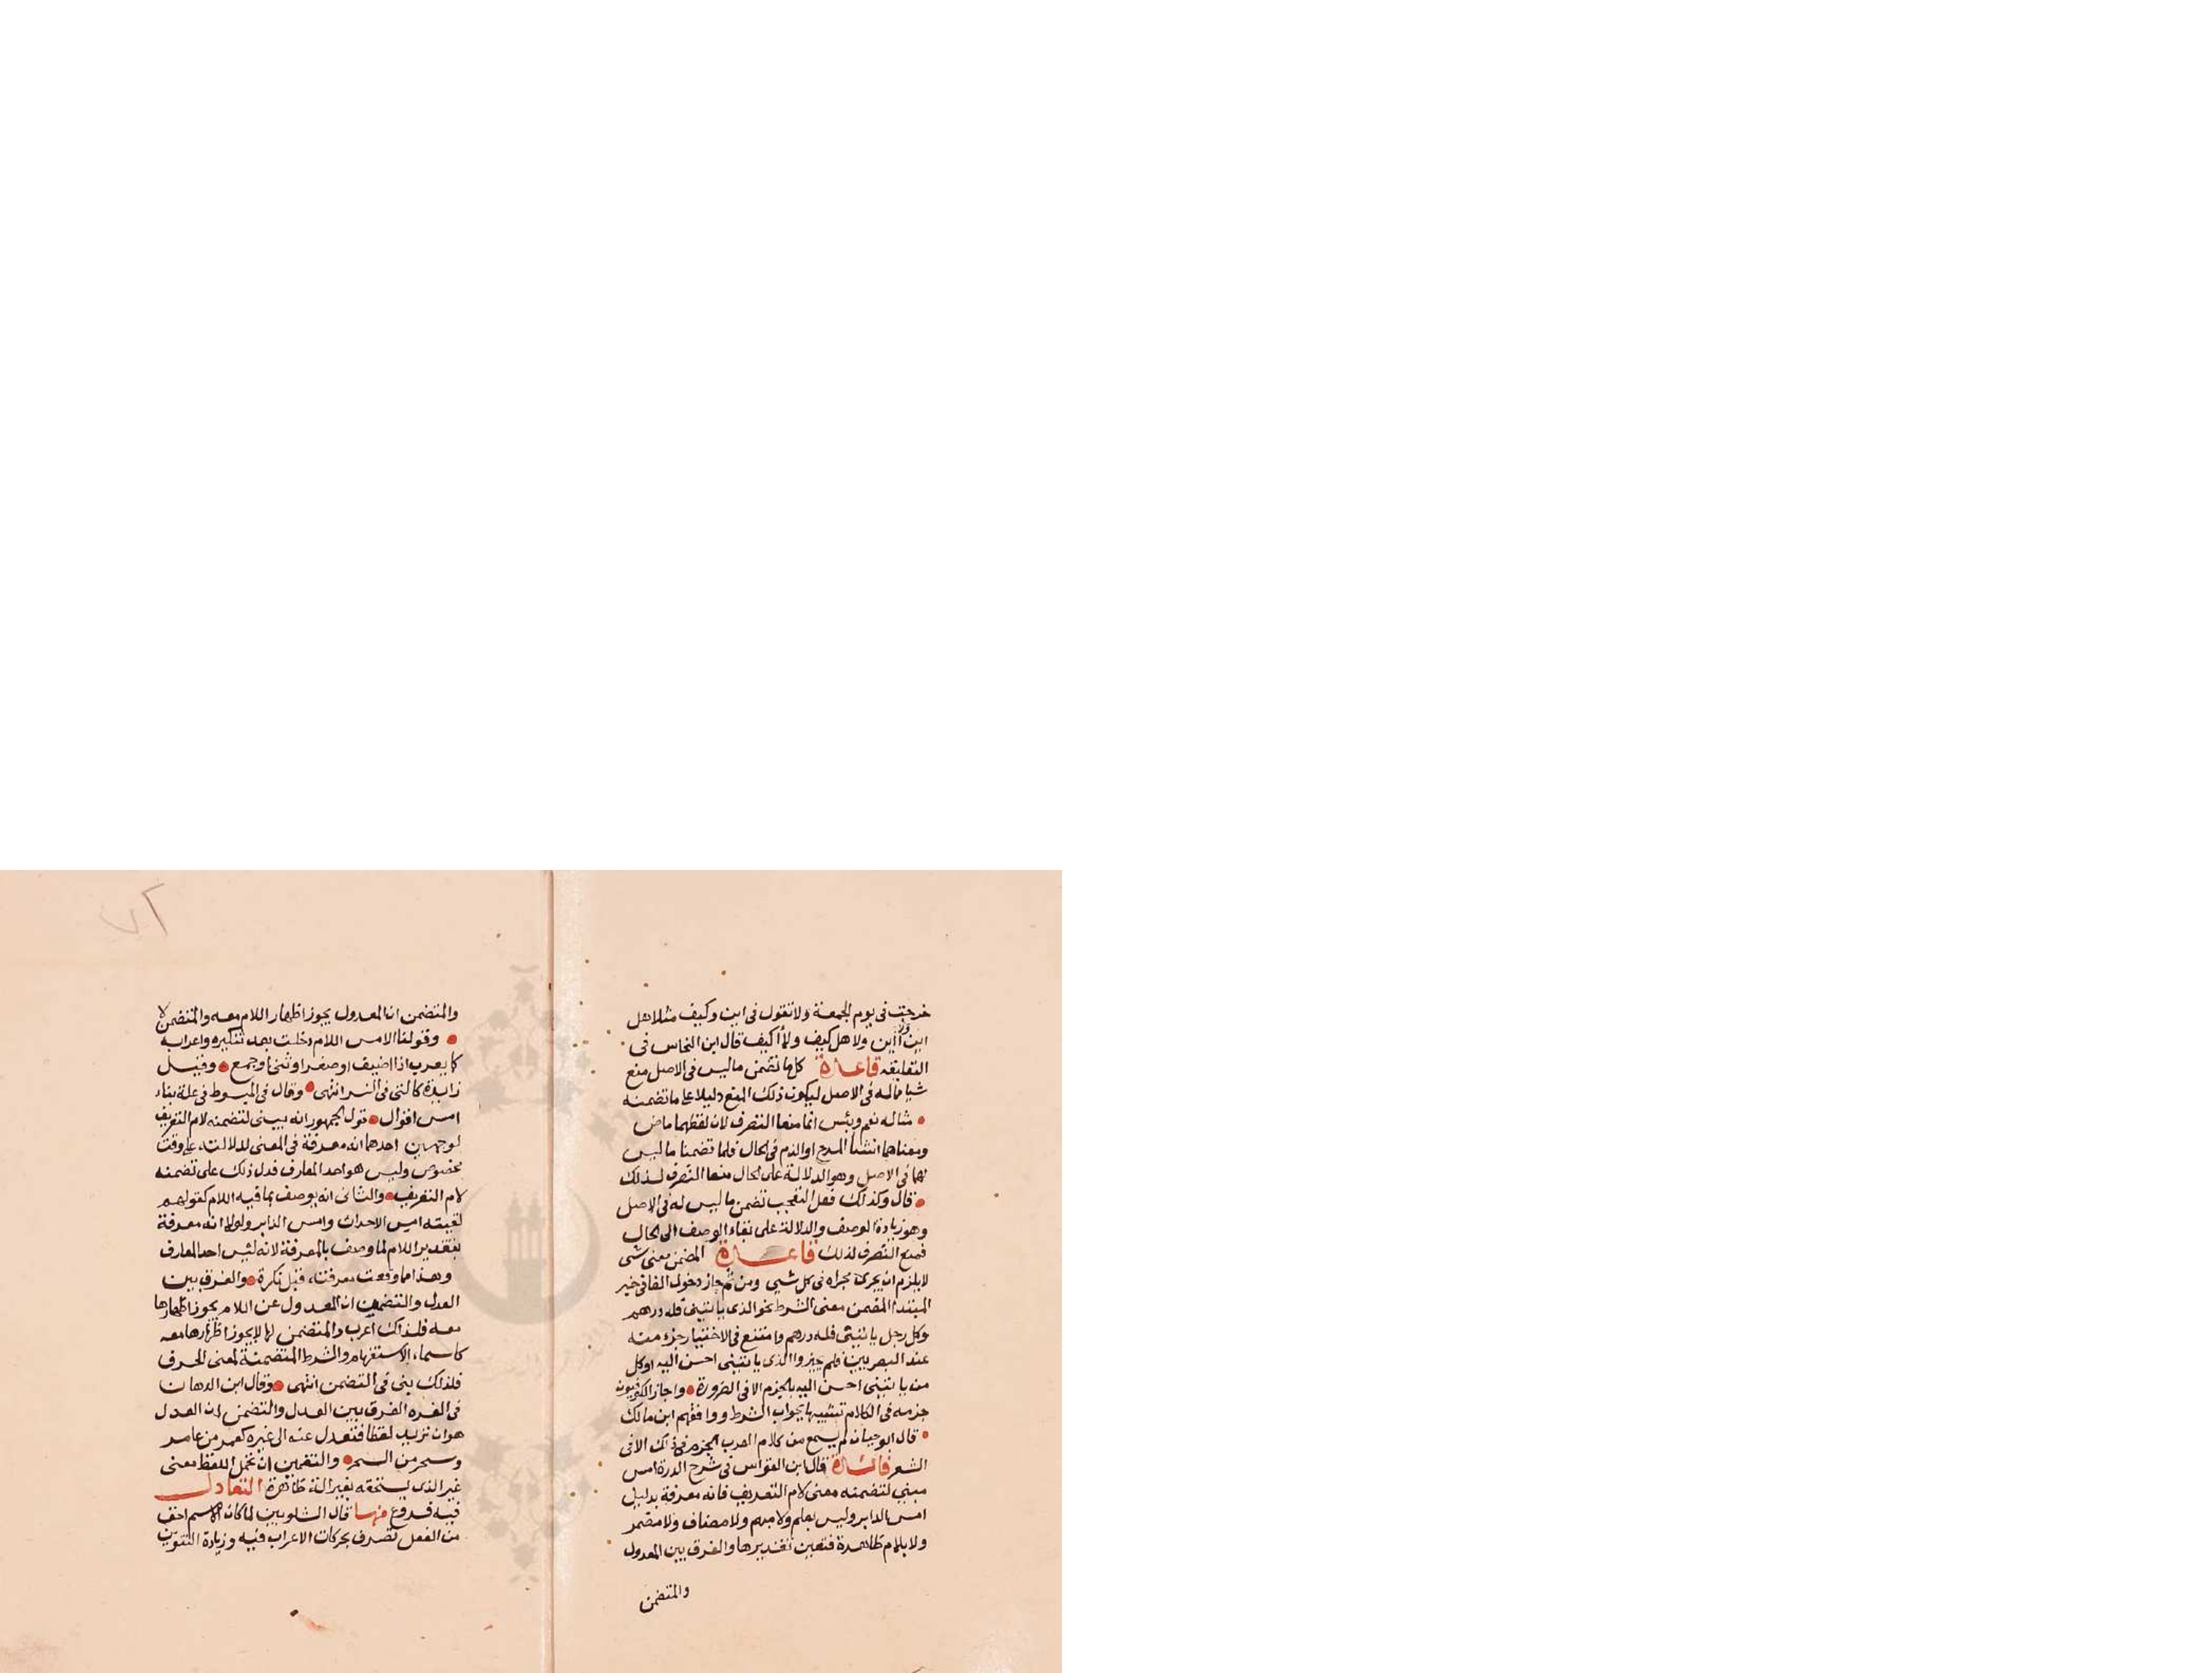 خرجت في يوم الجمعة ولا تقول في اين وكيف مثلا هل
اين ولا أاين ولا هل كيف ولا أكيف قال ابن النحاس في
التعليقه قاعدة كل ما تضمن ما ليس في الاصل منع
شيا مما له في الاصل ليكون ذلك المنع دليلا على ما تضمنه
مثاله نعم وبئس انما منعا التصرف لان لفظهما ماض
ومعناهما انشا المدح او الذم في الحال فلما تضمنا ما ليس
لهما في الاصل وهو الدلالة على الحال منعا التصرف لذلك
قال وكذلك فعل التعجب تضمن ما ليس له في الاصل
وهو زيادة الوصف والدلالة على بقاء الوصف الى الحال
فمنع التصرف لذلك قاعدة المضمن معنى شي
لا يلزم ان يجرى مجراه في كل شي ومن ثم جاز دخول الفا في خبر
المبتدا المضمن معنى الشرط نحو الذي ياتيني فله درهم
وكل رجل ياتيني فله درهم وامتنع في الاختيار جزمه
عند البصريين فلم يجيزوا الذي ياتيني احسن اليه او كل
من ياتيني احسن اليه بالجزم الا في الضرورة واجاز الكوفيون
جزمه في الكلام تشبيها بجواب الشرط ووافقهم ابن مالك
قال ابو حيان لم يسمع من كلام العرب الجزم في ذلك الا في
الشعر فائدة قال ابن القواس في شرح الدرة امس
مبني لتضمنه معنى لام التعريف فانه معرفة بدليل
امس الدابر وليس بعلم ولا مبهم ولا مضاف ولا مضمر
ولا بلام ظاهرة فتعين تقديرها والفرق بين المعدول
والمتضمن
والمتضمن ان المعدول يجوز اظهار اللام معه والمتضمن لا
وقولنا الامس اللام دخلت بعد تنكيره واعرابه
كما يعرب اذا اضيف او صغر او ثنى او جمع وقيل
زايدة كالتي في النسر انتهى وقال في المبسوط في علة بناء
امس اقوال قول الجمهور انه بني لتضمنه لام التعريف
لوجهين احدهما انه معرفة في المعنى لدلالته على وقت
مخصوص وليس هو احد المعارف فدل ذلك على تضمنه
لام التعريف والثانى انه يوصف بما فيه اللام كقولهم
لقيته امس الاحدث وامس الدابر ولولا انه معرفة
بتقدير اللام لما وصف بالمعرفة لانه ليس احد المعارف
وهذا مما وقعت معرفته قبل نكرة والفرق بين
العدل والتضمين ان المعدول عن اللام يجوز اظهارها
معه فلذلك اعرب والمتضمن لها لا يجوز اظهارها معه
كاسماء الاستفهام والشرط المتضمنة لمعنى الحرف
فلذلك بني في التضمن انتهى وقال ابن الدهان
في الغره الفرق بين العدل والتضمن ان العدل
هو ان تريد لفظا فتعدل عنه الى غيره كعمر من عامر
وسحر من السحر والتضمين ان تحمل اللفظ معنى
غير الذي يستحقه بغير الة ظاهرة التعادل
فيه فروع منها قال الشلوبين لما كان الاسم اخف
من الفعل تصرف بحركات الاعراب فيه وزيادة التنوين